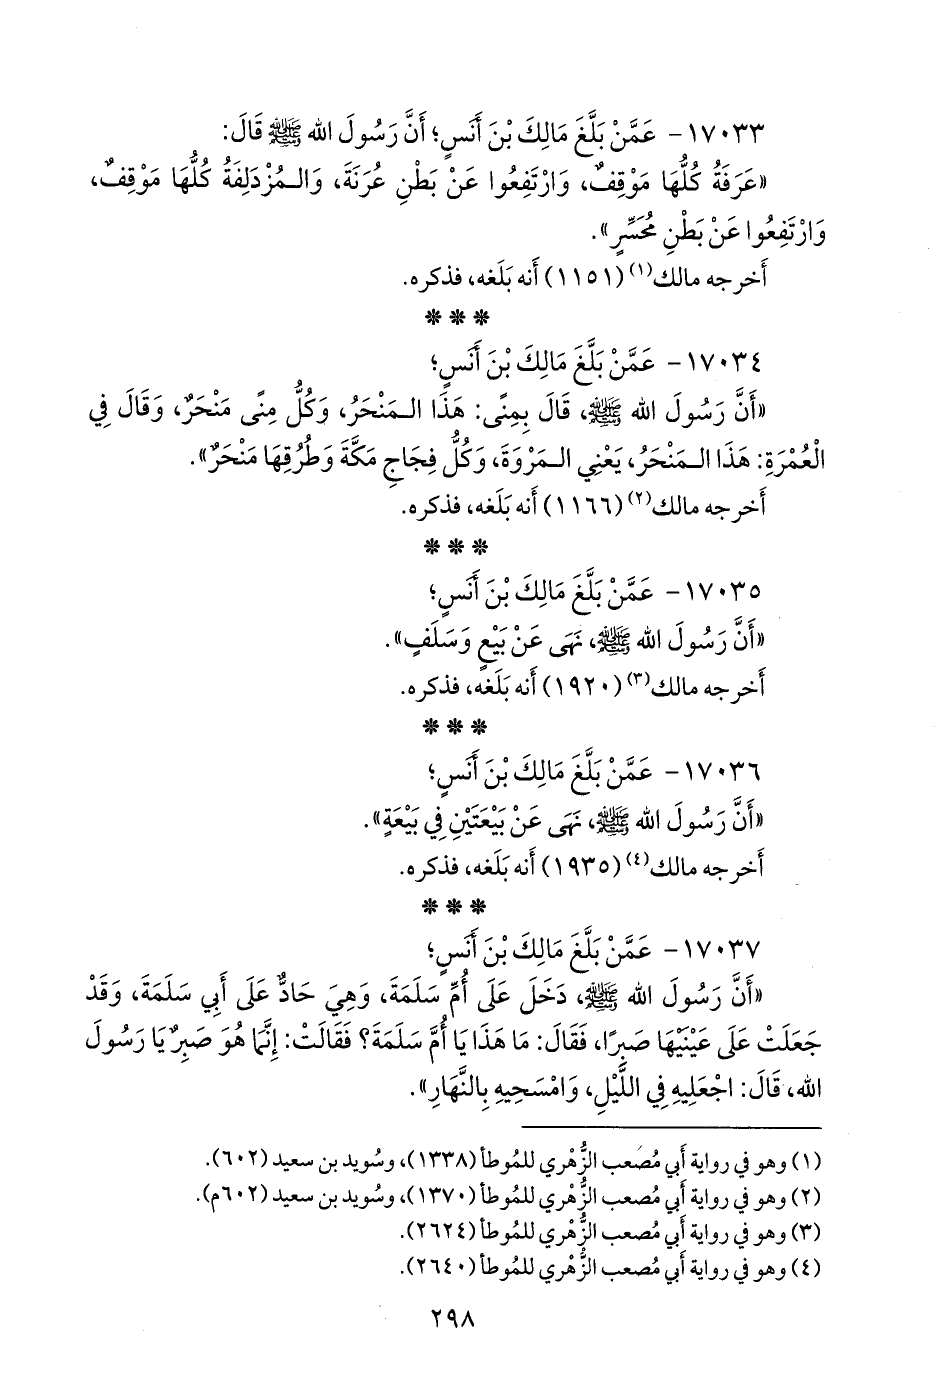 ١٧٠٣٣- عَمَّنْ بَلَّغَ مَالِكَ بْنَ أَنَسٍ؛ أَنَّ رَسُولَ الله ﷺ قَالَ:
«عَرَفَةُ كُلُّهَا مَوْقِفٌ، وَارْتَفِعُوا عَنْ بَطْنِ عُرَنَةَ، وَالـمُزْدَلِفَةُ كُلُّهَا مَوْقِفٌ،
وَارْتَفِعُوا عَنْ بَطْنِ مُحَسِّرٍ».
أَخرجه مالك(١) (١١٥١) أَنه بَلَغه، فذكره.
* * *
١٧٠٣٤- عَمَّنْ بَلَّغَ مَالِكَ بْنَ أَنَسٍ؛
«أَنَّ رَسُولَ الله ﷺ، قَالَ بِمِنًى: هَذَا الـمَنْحَرُ، وَكُلُّ مِنًى مَنْحَرٌ، وَقَالَ فِي
الْعُمْرَةِ: هَذَا الـمَنْحَرُ، يَعْنِي الـمَرْوَةَ، وَكُلُّ فِجَاجِ مَكَّةَ وَطُرُقِهَا مَنْحَرٌ».
أَخرجه مالك(٢) (١١٦٦) أَنه بَلَغه، فذكره.
* * *
١٧٠٣٥- عَمَّنْ بَلَّغَ مَالِكَ بْنَ أَنَسٍ؛
«أَنَّ رَسُولَ الله ﷺ، نَهَى عَنْ بَيْعٍ وَسَلَفٍ».
أَخرجه مالك(٣) (١٩٢٠) أَنه بَلَغه، فذكره.
* * *
١٧٠٣٦- عَمَّنْ بَلَّغَ مَالِكَ بْنَ أَنَسٍ؛
«أَنَّ رَسُولَ الله ﷺ، نَهَى عَنْ بَيْعَتَيْنِ فِي بَيْعَةٍ».
أَخرجه مالك(٤) (١٩٣٥) أَنه بَلَغه، فذكره.
* * *
١٧٠٣٧- عَمَّنْ بَلَّغَ مَالِكَ بْنَ أَنَسٍ؛
«أَنَّ رَسُولَ الله ﷺ، دَخَلَ عَلَى أُمِّ سَلَمَةَ، وَهِيَ حَادٌّ عَلَى أَبِي سَلَمَةَ، وَقَدْ
جَعَلَتْ عَلَى عَيْنَيْهَا صَبِرًا، فَقَالَ: مَا هَذَا يَا أُمَّ سَلَمَةَ؟ فَقَالَتْ: إِنَّمَا هُوَ صَبِرٌ يَا رَسُولَ
الله، قَالَ: اجْعَلِيهِ فِي اللَّيْلِ، وَامْسَحِيهِ بِالنَّهَارِ».
(١) وهو في رواية أَبي مُصعب الزُّهْري للمُوطأ (١٣٣٨)، وسُويد بن سعيد (٦٠٢).
(٢) وهو في رواية أَبي مُصعب الزُّهْري للمُوطأ (١٣٧٠)، وسُويد بن سعيد (٦٠٢م).
(٣) وهو في رواية أَبي مُصعب الزُّهْري للمُوطأ (٢٦٢٤).
(٤) وهو في رواية أَبي مُصعب الزُّهْري للمُوطأ (٢٦٤٠).
٢٩٨